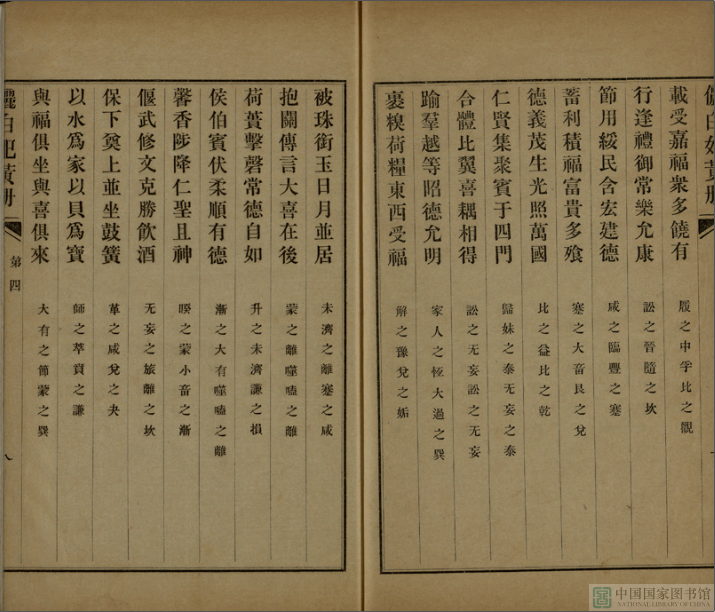 載受嘉福衆多饒有 履之中孚比之觀
行逢禮御常樂允康 訟之晉隨之坎
節用綏民含宏建德 咸之臨豐之蹇
蓄利積福富貴多飱 蹇之大畜艮之兌
德義茂生光照萬國 比之益比之乾
仁賢集聚賓于四門 歸妹之泰无妄之泰
合體比翼喜耦相得 訟之无妄訟之无妄
踰羣越等昭德允明 家人之恆大過之巽
裹糗荷糧東西受福 解之豫兌之姤
被珠銜玉日月並居 未濟之離蹇之咸
抱關傳言大喜在後 蒙之離噬嗑之離
荷蕢擊磬常德自如 升之未濟謙之損
侯伯賓伏柔順有德 漸之大有噬嗑之離
馨香陟降仁聖且神 睽之蒙小畜之漸
偃武修文克勝飲酒 无妄之旅離之坎
保下奠上並坐鼓簧 革之咸兌之夬
以水爲家以貝爲寶 師之萃賁之謙
與福俱坐與喜俱來 大有之節蒙之巽
儷白妃黃册 第四 八
中国国家图书馆
NATIONAL LIBRARY OF CHINA